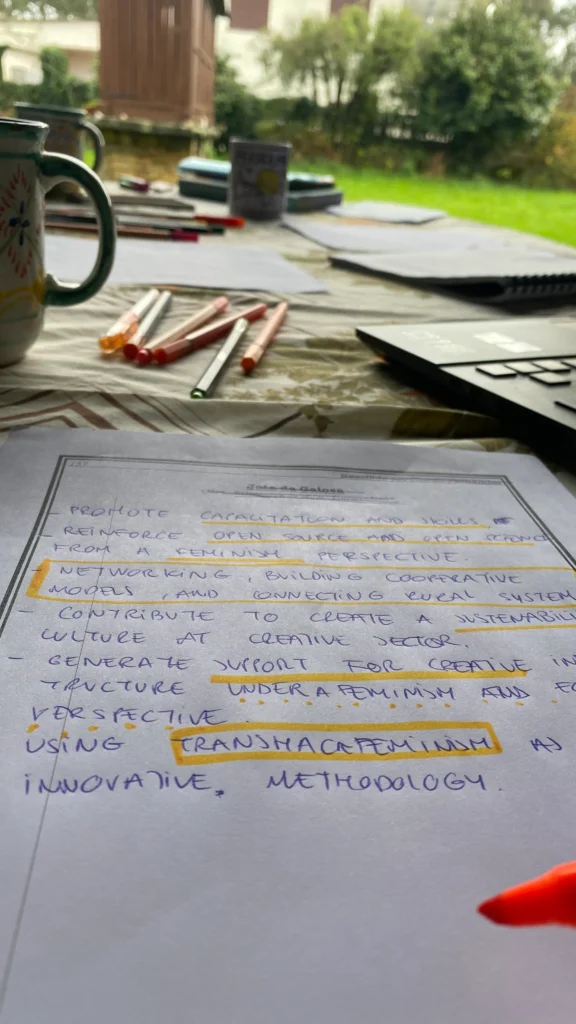 - PROMOTE CAPACITATION AND SKILLS,
- REINFORCE OPEN SOURCE AND OPEN
FROM A FEMINISM PERSPECTIVE.
- NETWORKING, BUILDING COOPERATIVE
MODELS, AND CONNECTING RURAL SYSTEM
- CONTRIBUTE TO CREATE A SUSTENABIL
CULTURE AT CREATIVE SECTOR.
- GENERATE SUPPORT FOR CREATIVE IN
TRUCTURE UNDER A FEMINISM AND
PERSPECTIVE
USING TRANSHACKFEMINISM AS
INNOVATIVE. METHODOLOGY.